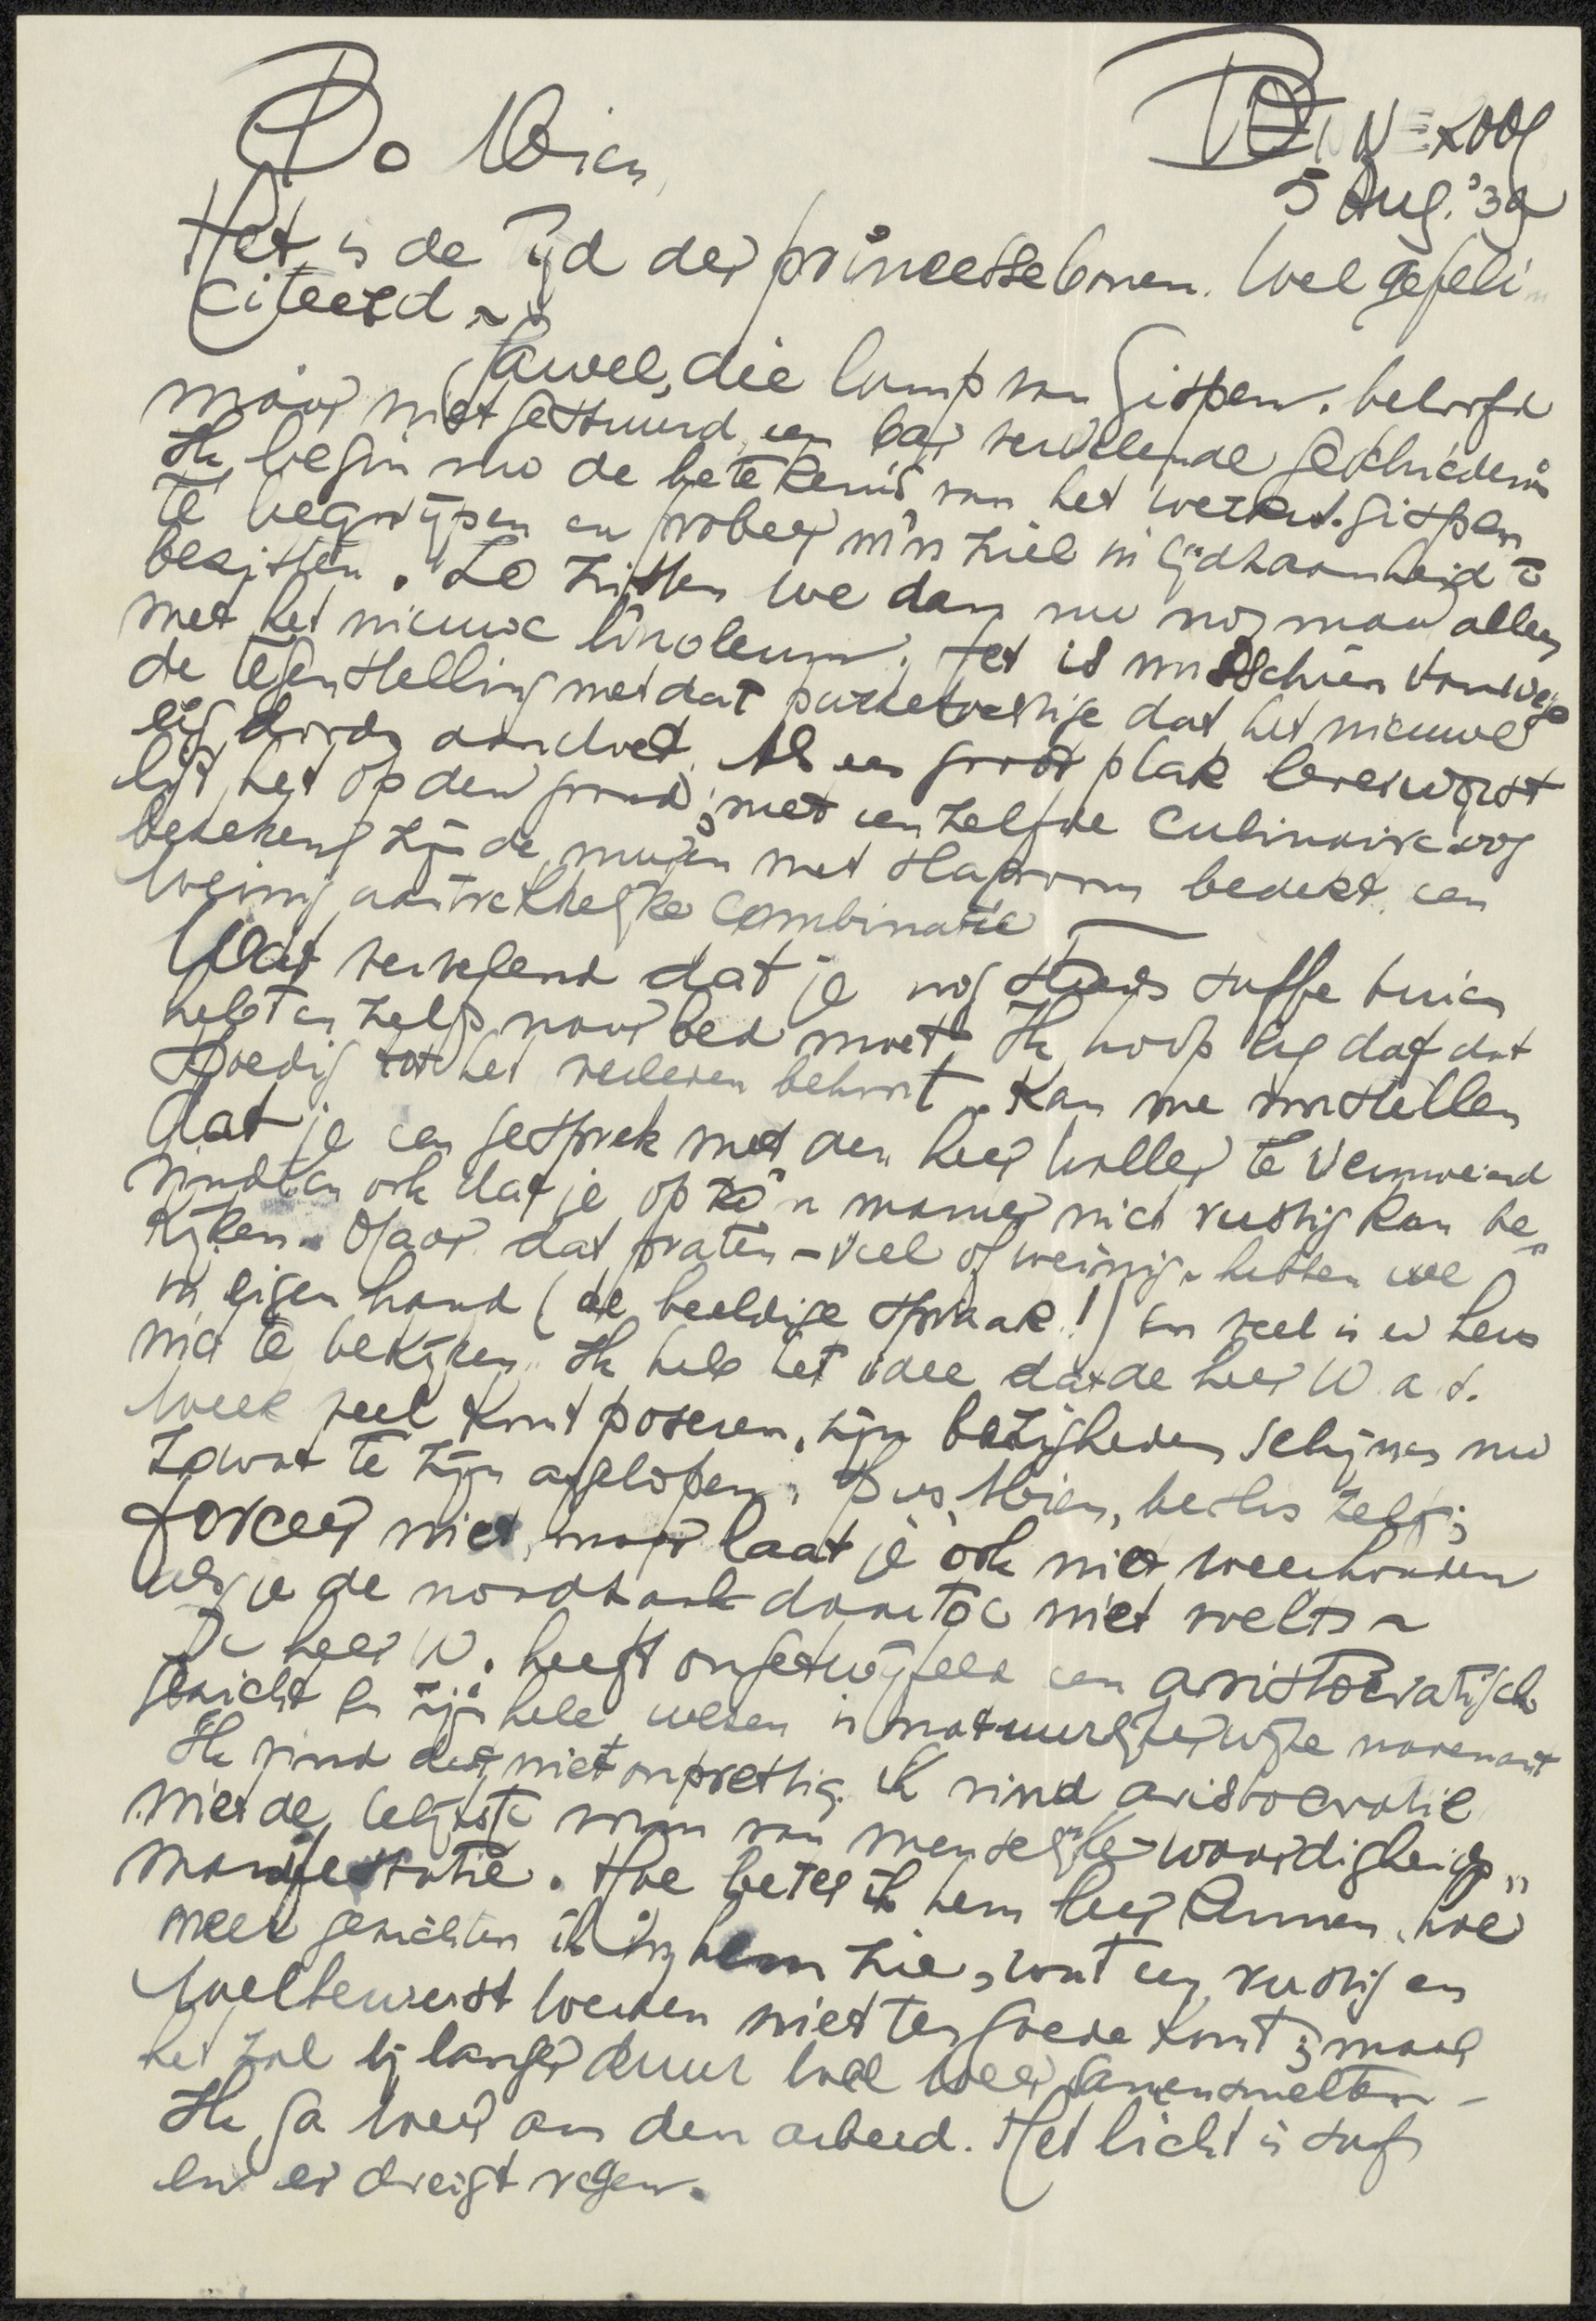 Do Wien,
5 Aug. '39
Het is de Tijd der princessebonen. Wel gefeli
citeerd ~
Jawel, die lamp van Gispen. beloofd
maar niet gestuurd, een bar vervelende geschiedenis
Ik begin nu de betekenis van het werkw. gispen
te begrijpen en probeer m'n ziel in lijdzaamheid te
bezitten. Zo zitten we dan nu nog maar alleen
met het nieuwe linoleum. Het is misschien vanwege
de tegenstelling met dat dat het nieuwe
eig. doods aandoet. Als een groot plak leverworst
ligt het op den grond; met eenzelfde culinaire oog
bekeken zijn de muren met Haprovm bedekt. een
weinig aantrekkelijke combinatie —
Wat vervelend dat je nog steeds suffe buien
hebt en zelfs naar bed moet. Ik hoop erg dat dat
spoedig tot het verleden behoort. Kan me voorstellen
dat je een gesprek met den heer te vermoeiend
vindt en ook dat je op zo'n manier niet rustig kan be„
kijken. Maar dat praten – veel of weinig – hebben we
in eigen hand (de beeldige spraak!) en veel is er heus
niet te bekijken. Ik heb het idee dat de heer W. a.s.
week veel komt poseren, zijn bezigheden schijnen nu
zowat te zijn afgelopen. Dus Wien, beslis zelf;
forceer niet, maar laat je ook niet weerhouden
als je de noodzaak daartoe niet voelt ~
De heer W. heeft ongetwijfeld een aristocratisch
gezicht en zijn hele wezen is natuurlijkerwijze navenant
Ik vind dat niet onprettig. Ik vind aristocratie
niet de lelijkste van menselijke-waardigheids„
manifestatie. Hoe beter ik hem leer kennen, hoe
meer gezichten ik in hem zie, wat een rustig en
welbewust werken niet ten goede komt; maar
het zal bij langer duur wel weer samensmelten –
Ik ga weer aan den arbeid. Het licht is suf
en er dreigt regen.